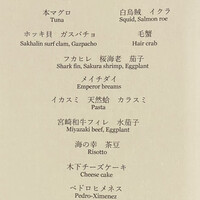 本マグロ
Tuna
白烏賊 イクラ
Squid, Salmon roe
ホッキ貝 ガスパチョ
Sakhalin surf clam, Gazpacho
毛蟹
Hair crab
フカヒレ 桜海老 茄子
Shark fin, Sakura shrimp, Eggplant
メイチダイ
Emperor breams
イカスミ 天然蛤 カラスミ
Pasta
宮崎和牛フィレ 水茄子
Miyazaki beef, Eggplant
海の幸 茶豆
Risotto
木下チーズケーキ
Cheese cake
ペドロヒメネス
Pedro-Ximenez